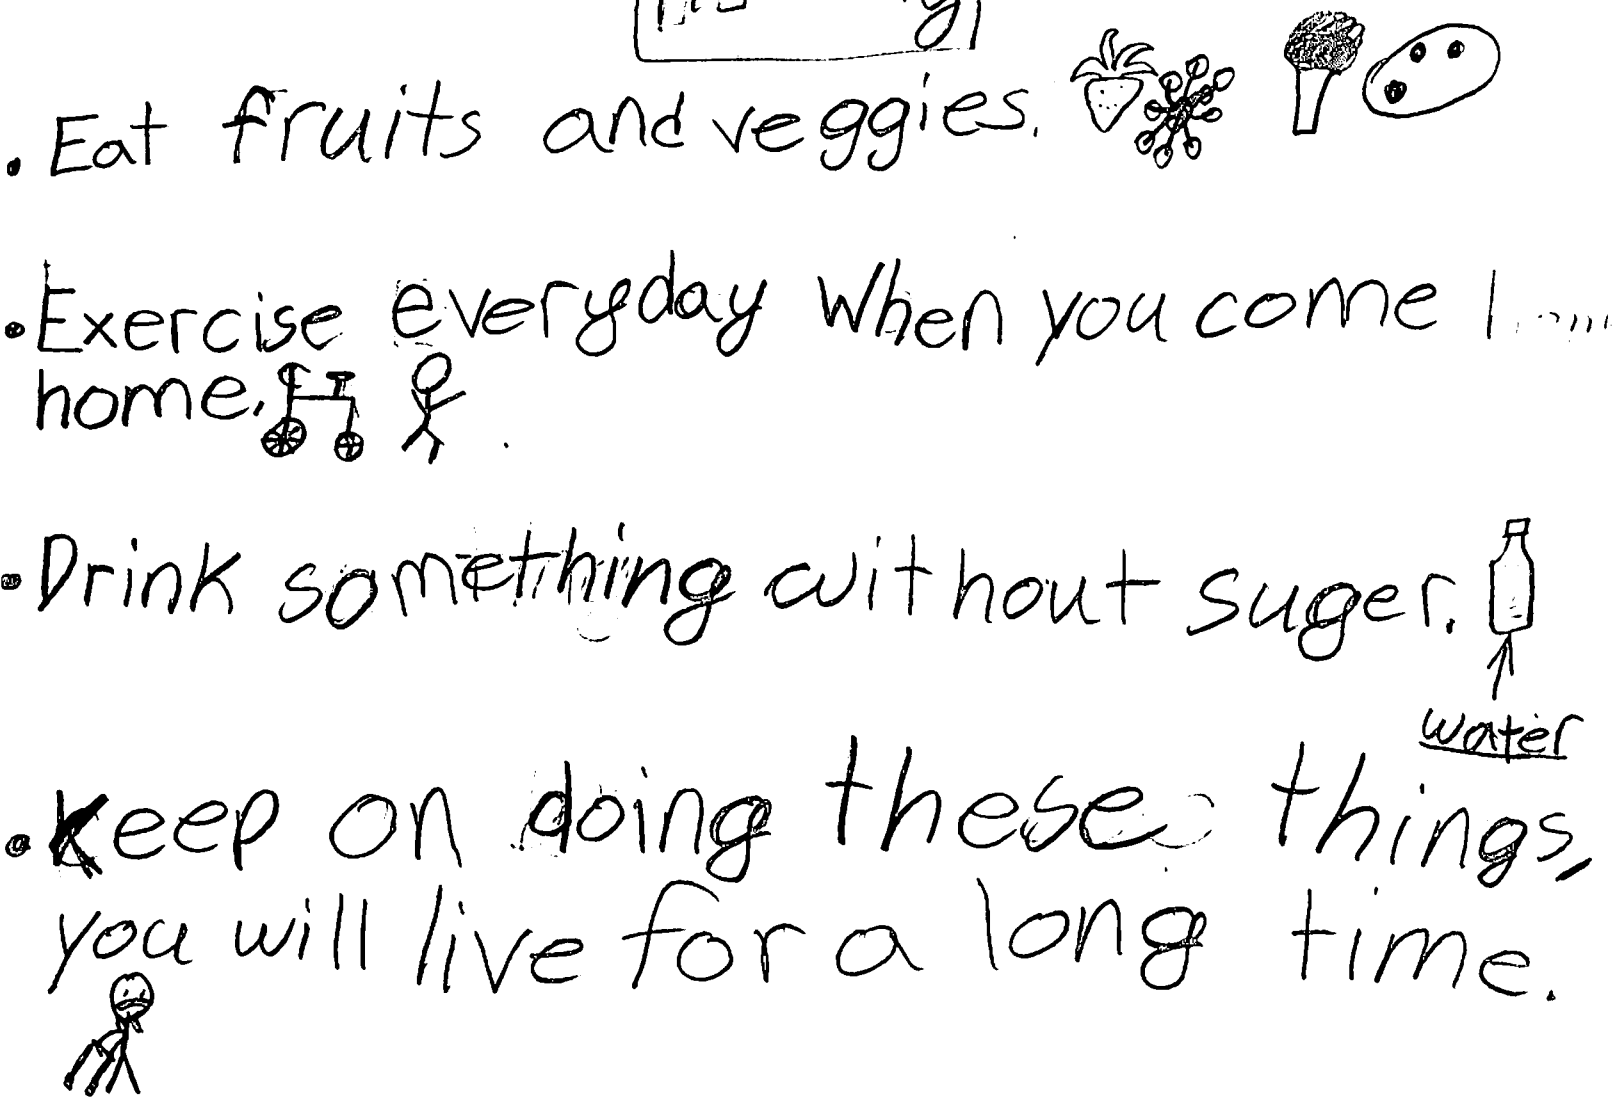 . Eat fruits and veggies.
• Exercise everyday When you come
home.
• Drink something without suger.
water
• Keep on doing these things,
you will live for a long time.